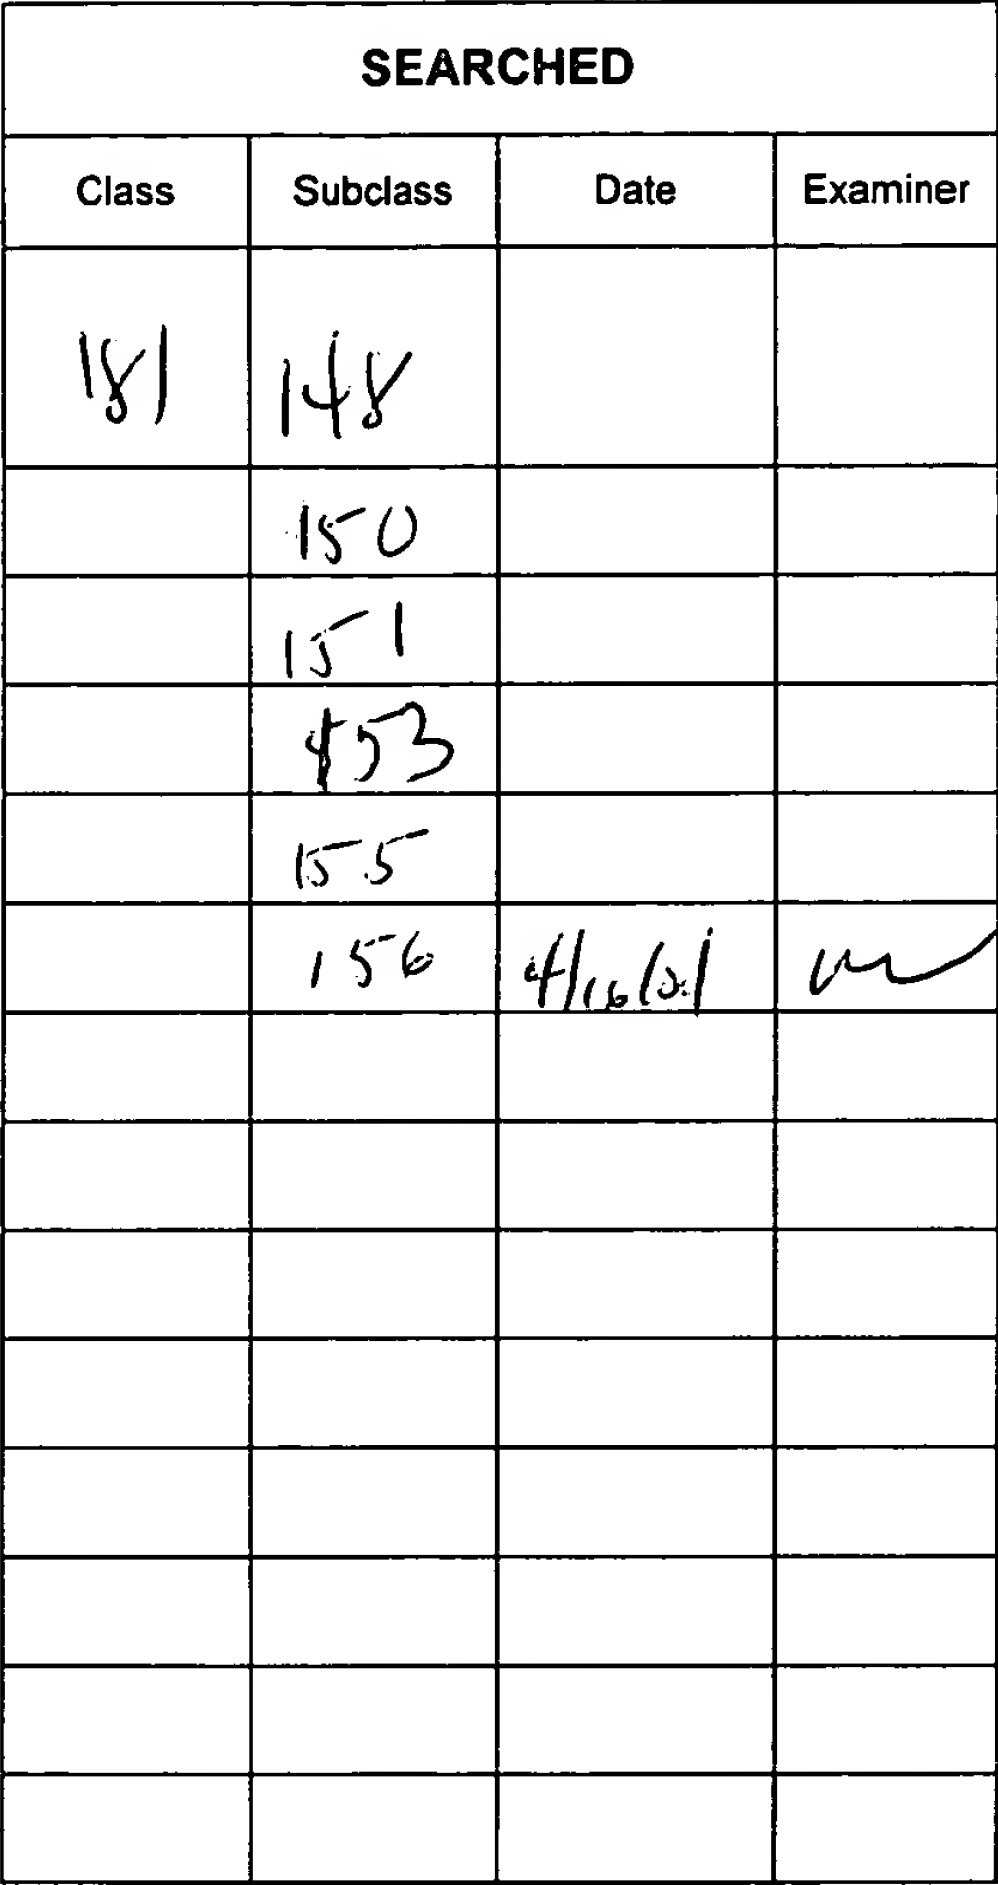 SEARCHED
Class Subclass Date Examiner
181 148
150
151
153
155
156